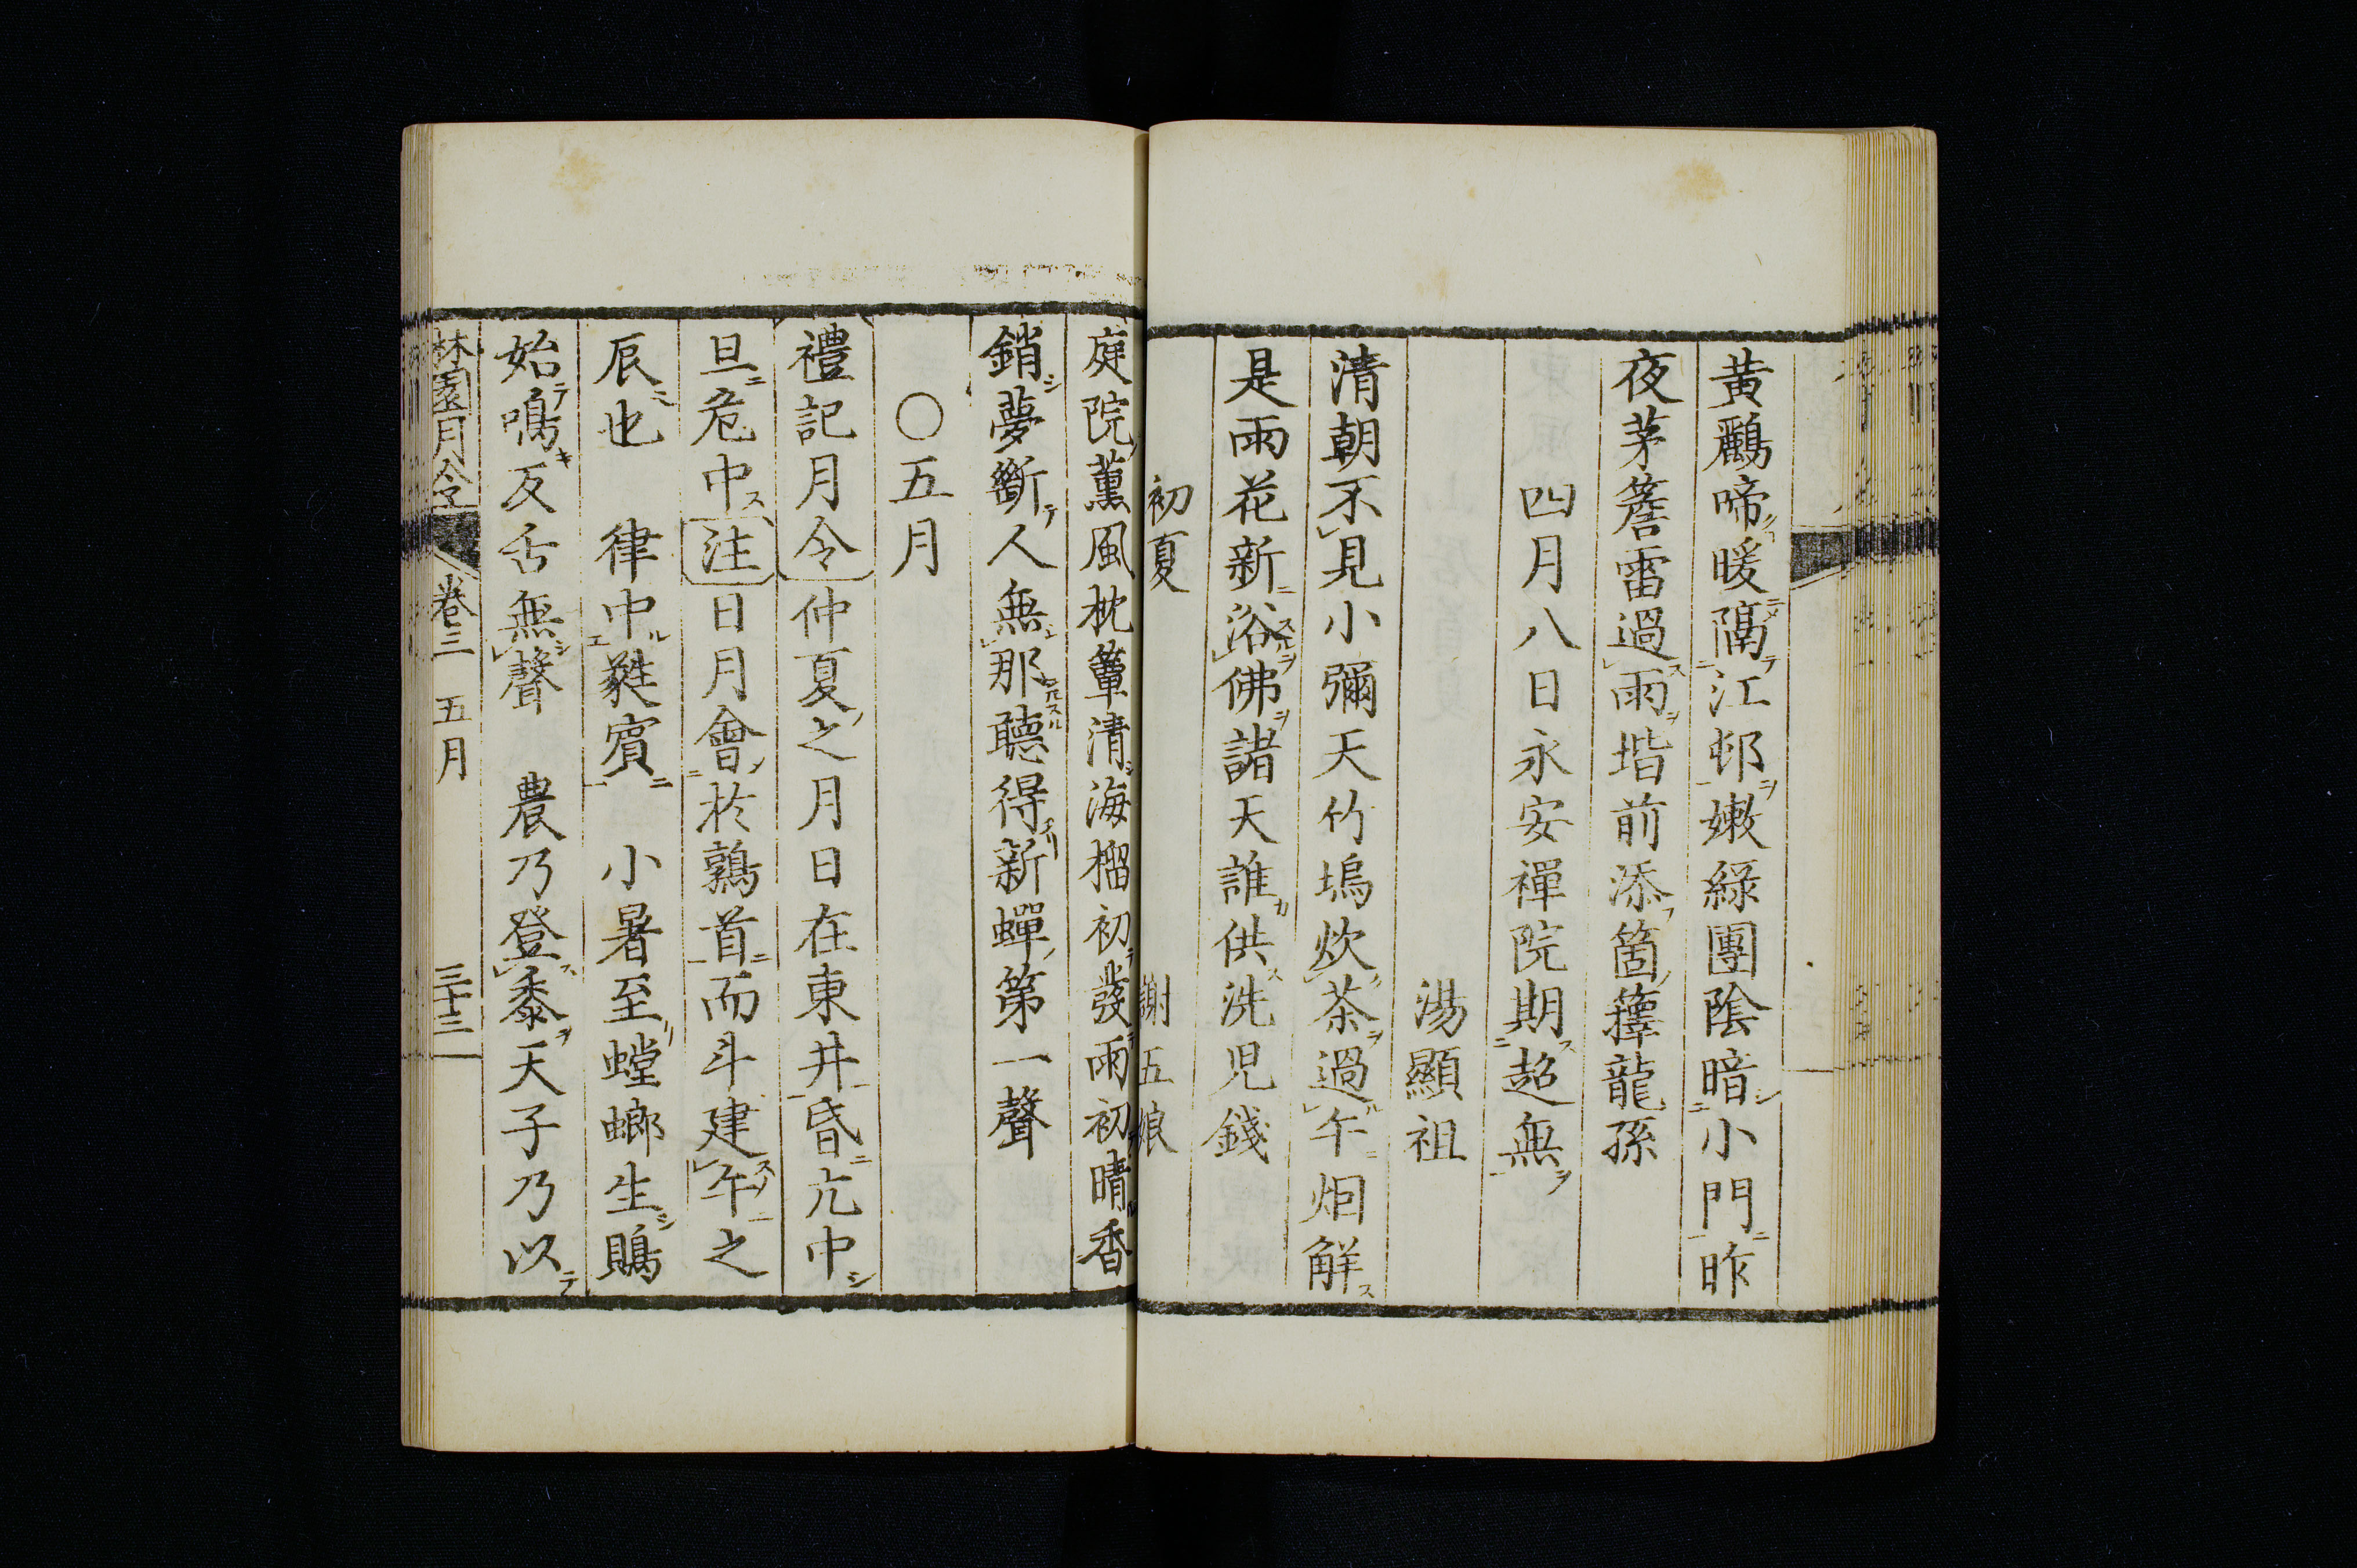 黃鸝啼暖隔江邨嫩綠團陰暗小門昨
夜茅簷雷過雨堦前添箇籜龍孫
四月八日永安禪院期超無
湯顯祖
清朝不見小彌天竹塢炊茶過午烟鮮
是雨花新浴佛諸天誰供洗児錢
初夏 謝五娘
庭院薰風枕簟清海榴初發雨初晴香
銷夢斷人無那聽得新蟬第一聲
○五月
禮記月令仲夏之月日在東井昏亢中
旦危中注日月會於鶉首而斗建午之
辰也 律中蕤賓 小暑至螳螂生鵙
始鳴反舌無聲 農乃登黍天子乃以
林園月令 卷三 五月 三十三